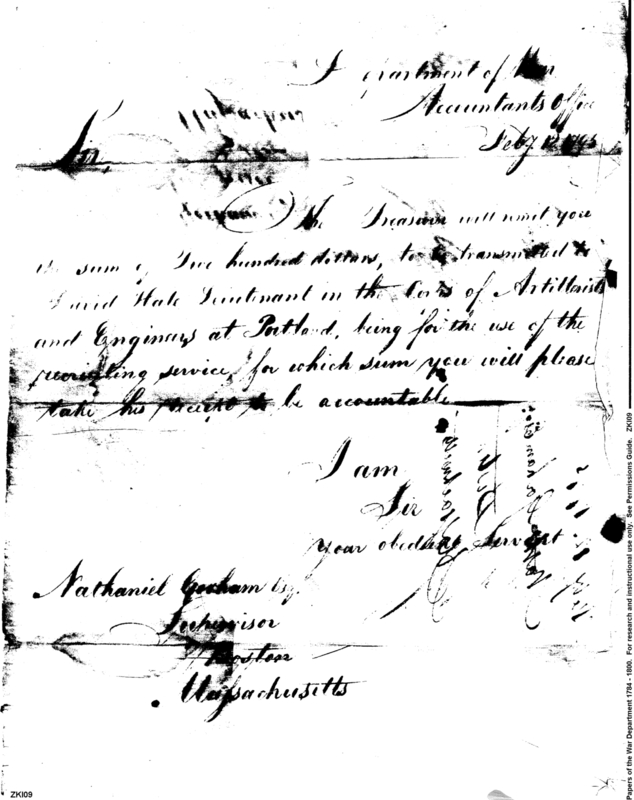 Department of War
Accountants Office
Feby 12 1795
Sir,
The Treasurer will remit you
the sum of Five hundred dollars, to be transmitted to
David Hale Lieutenant in the Corps of Artillerists
and Engineers at Portland, being for the use of the
recruiting service, for which sum you will please
take his receipt to be accountable
I am
Sir
your obedient Servant
Nathaniel Gorham Esq.
Supervisor
Boston
Massachusetts
ZKI09
Papers of the War Department 1784 - 1800. For research and instructional use only. See Permissions Guide. ZKI09